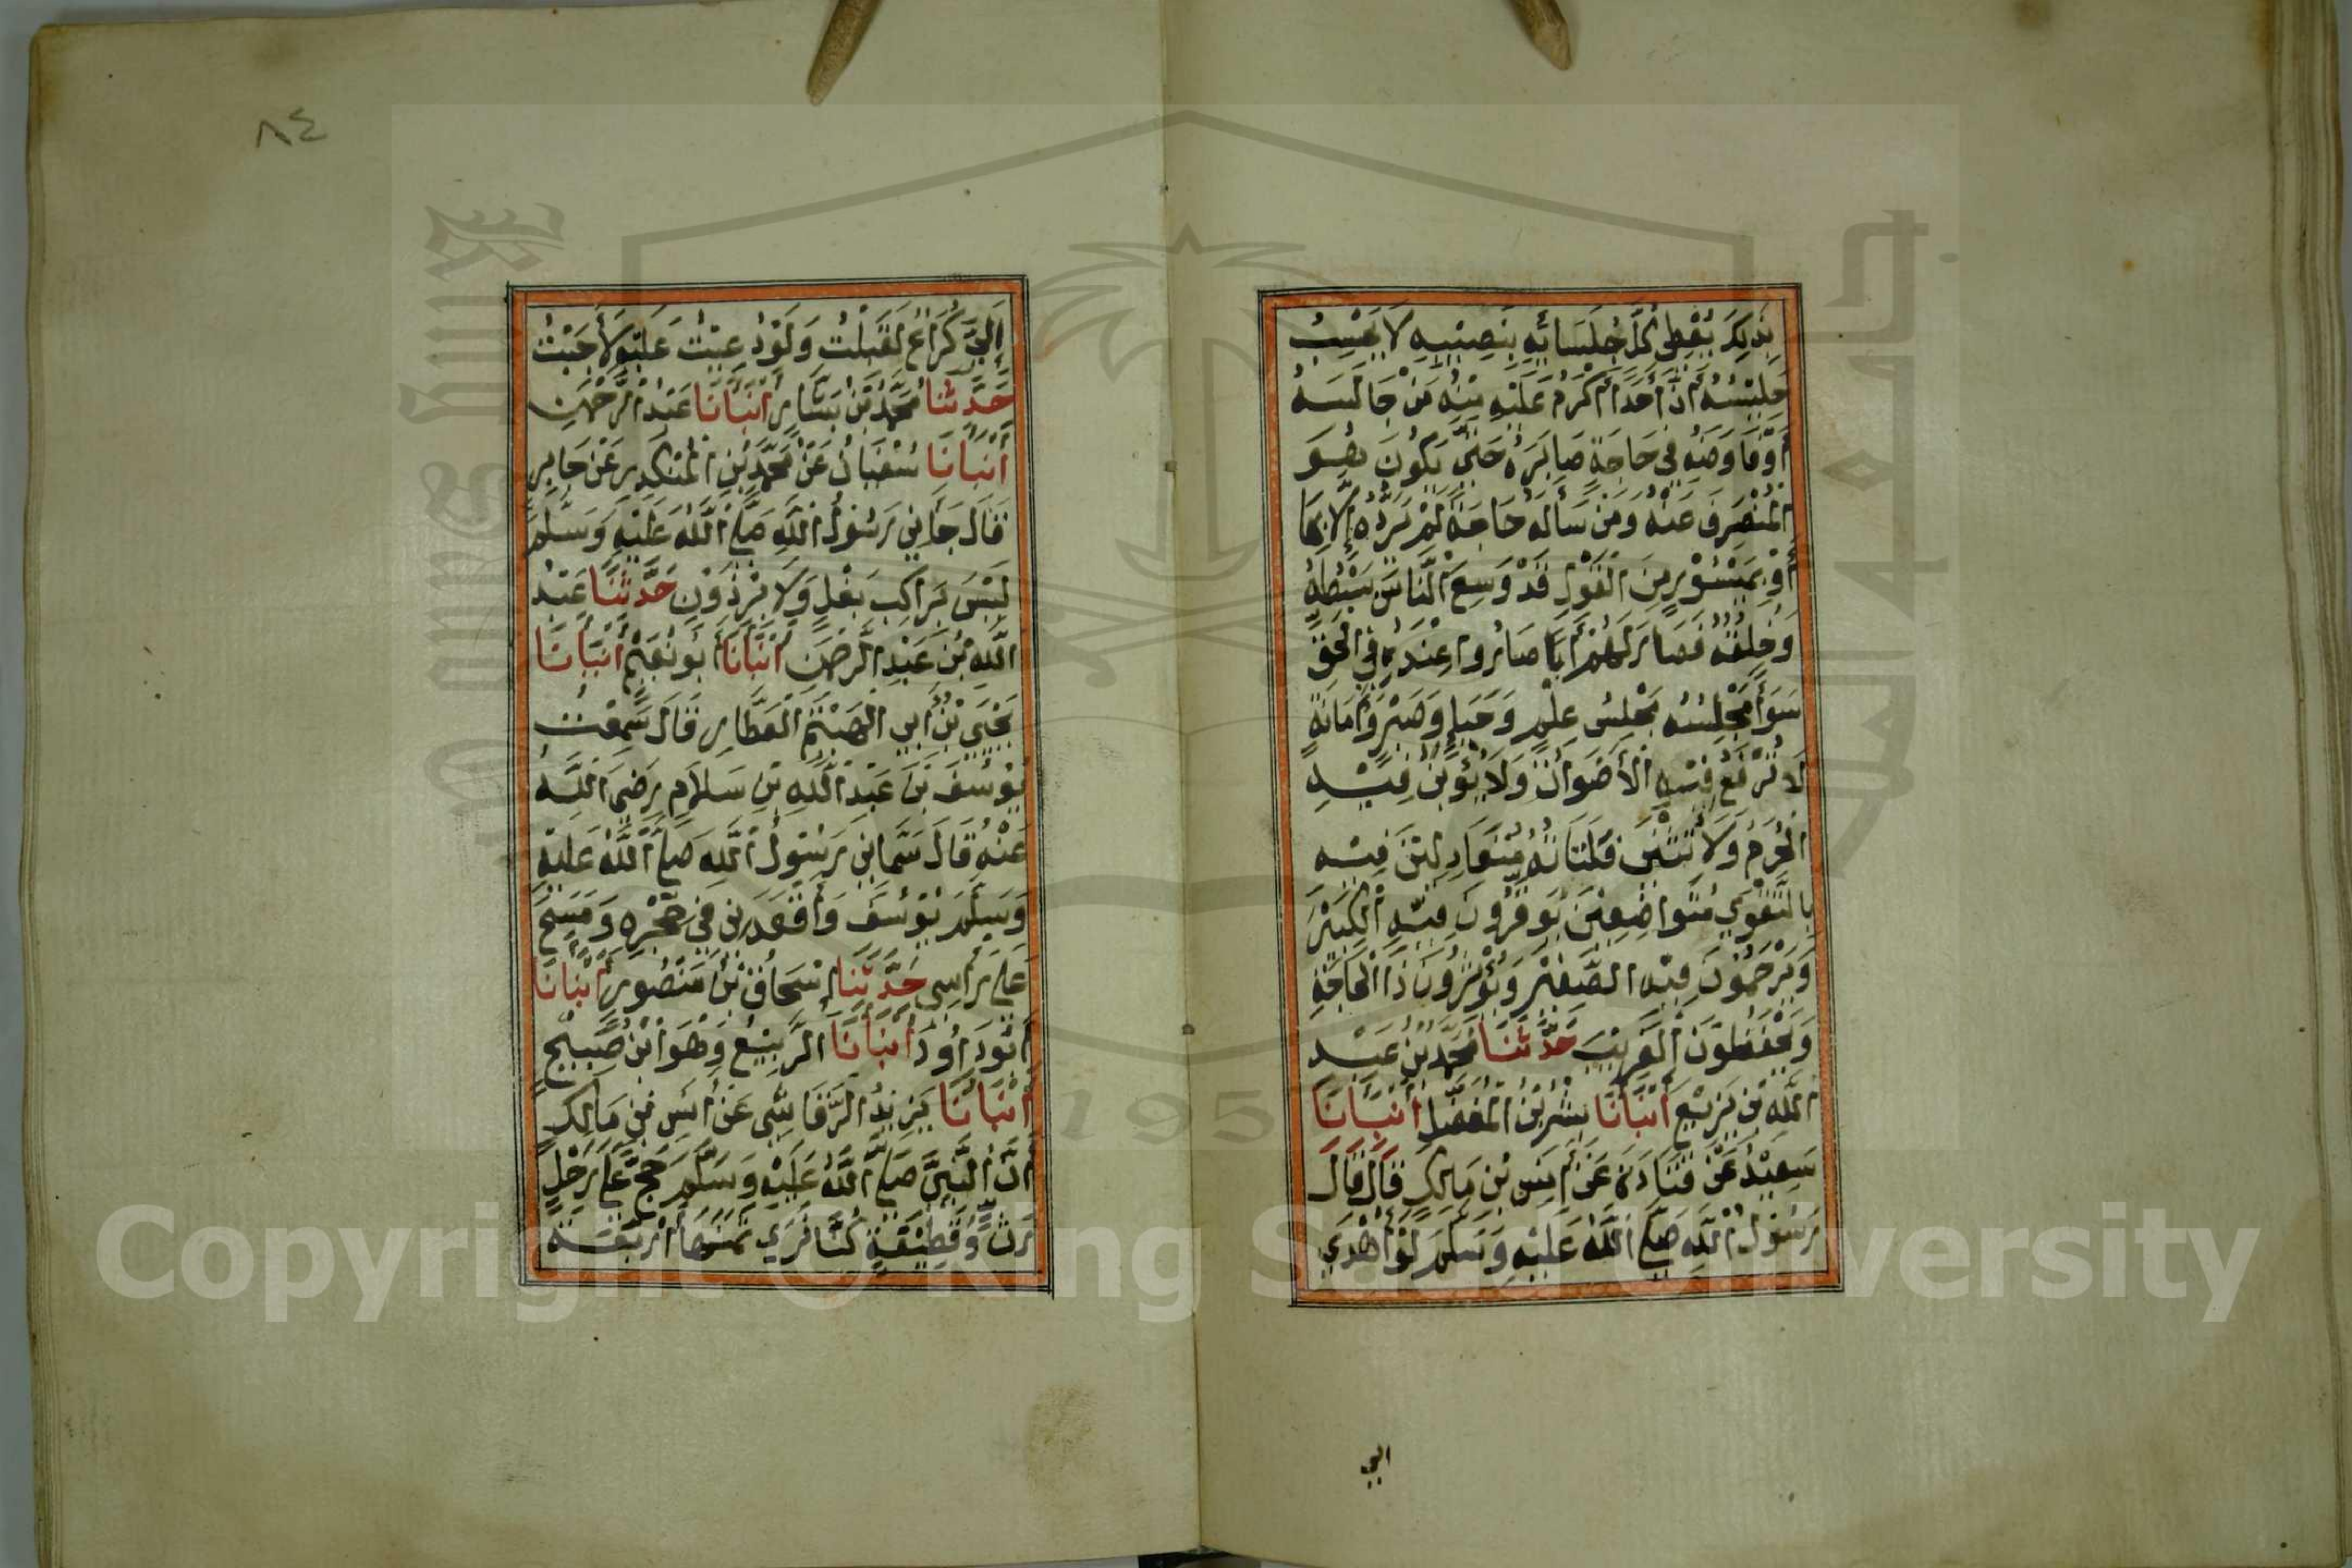 بِذَلِكَ يُعْطِي كُلَّ جُلَسَائِهِ بِنَصِيْبِهِ لَا يَحْسِبُ
جَلِيْسُهُ أَنَّ أَحَدًا أَكْرَمُ عَلَيْهِ مِنْهُ مَنْ جَالَسَهُ
أَوْ فَاوَضَهُ فِي حَاجَةٍ صَابَرَهُ حَتَّى يَكُونَ هُوَ
الْمُنْصَرِفَ عَنْهُ وَمَنْ سَأَلَهُ حَاجَةً لَمْ يَرُدَّهُ إِلَّا بِهَا
أَوْ بِمَيْسُوْرٍ مِنَ الْقَوْلِ قَدْ وَسِعَ النَّاسَ بَسْطُهُ
وَخُلُقُهُ فَصَارَ لَهُمْ أَبًا صَارُوا عِنْدَهُ فِي الْحَقِّ
سَوَآءً مَجْلِسُهُ مَجْلِسُ عِلْمٍ وَحَيَاءٍ وَصَبْرٍ وَأَمَانَةٍ
لَا تُرْفَعُ فِيْهِ الْأَصْوَاتُ وَلَا تُؤْبَنُ فِيْهِ
الْحُرَمُ وَلَا تُنْثَى فَلَتَاتُهُ مُتَعَادِلِيْنَ فِيْهِ
بِالتَّقْوَى مُتَوَاضِعِيْنَ يُوَقِّرُونَ فِيْهِ الْكَبِيْرَ
وَيَرْحَمُوْنَ فِيْهِ الصَّغِيْرَ وَيُؤْثِرُونَ ذَا الْحَاجَةِ
وَيَحْفَظُوْنَ الْغَرِيْبَ حَدَّثَنَا مُحَمَّدُ بْنُ عَبْدِ
اللَّهِ بْنِ بَزِيْعٍ أَنْبَأَنَا بِشْرُ بْنُ الْمُفَضَّلِ أَنْبَأَنَا
سَعِيْدٌ عَنْ قَتَادَةَ عَنْ أَنَسِ بْنِ مَالِكٍ قَالَ قَالَ
رَسُوْلُ اللَّهِ صَلَّى اللَّهُ عَلَيْهِ وَسَلَّمَ لَوْ أُهْدِيَ
الي
٨٤
إِلَيَّ كُرَاعٌ لَقَبِلْتُ وَلَوْ دُعِيْتُ عَلَيْهِ لَأَجَبْتُ
حَدَّثَنَا مُحَمَّدُ بْنُ بَشَّارٍ أَنْبَأَنَا عَبْدُ الرَّحْمَنِ
أَنْبَأَنَا سُفْيَانُ عَنْ مُحَمَّدِ بْنِ الْمُنْكَدِرِ عَنْ جَابِرٍ
قَالَ جَآءَنِي رَسُوْلُ اللَّهِ صَلَّى اللَّهُ عَلَيْهِ وَسَلَّمَ
لَيْسَ بِرَاكِبِ بَغْلٍ وَلَا بِرْذَوْنٍ حَدَّثَنَا عَبْدُ
اللَّهِ بْنُ عَبْدِ الرَّحْمَنِ أَنْبَأَنَا أَبُو نُعَيْمٍ أَنْبَأَنَا
يَحْيَى بْنُ أَبِي الْهَيْثَمِ الْعَطَّارِ قَالَ سَمِعْتُ
يُوْسُفَ بْنَ عَبْدِ اللَّهِ بْنِ سَلَامٍ رَضِيَ اللَّهُ
عَنْهُ قَالَ سَمَّانِي رَسُوْلُ اللَّهِ صَلَّى اللَّهُ عَلَيْهِ
وَسَلَّمَ يُوْسُفَ وَأَقْعَدَنِي فِي حِجْرِهِ وَمَسَحَ
عَلَى رَأْسِي حَدَّثَنَا إِسْحَاقُ بْنُ مَنْصُوْرٍ أَنْبَأَنَا
أَبُو دَاوُدَ أَنْبَأَنَا الرَّبِيْعُ وَهُوَ ابْنُ صَبِيْحٍ
أَنْبَأَنَا يَزِيْدُ الرَّقَاشِيُّ عَنْ أَنَسِ بْنِ مَالِكٍ
أَنَّ النَّبِيَّ صَلَّى اللَّهُ عَلَيْهِ وَسَلَّمَ حَجَّ عَلَى رَحْلٍ
رَثٍّ وَقَطِيْفَةٍ كُنَّا نَرَى ثَمَنَهَا أَرْبَعَةَ
1957
Copyright © King Saud University